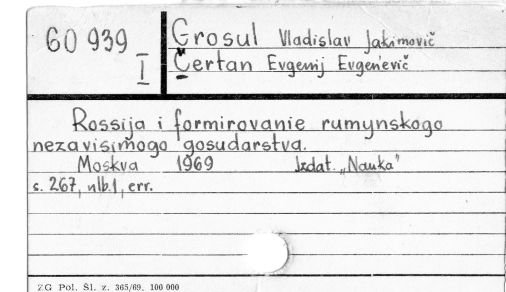 60 939
I
Grosul Vladislav Jakimovič
Čertan Evgenij Evgen'evič
Rossija i formirovanie rumynskogo
nezavisimogo gosudarstva.
Moskva 1969 Izdat. „Nauka"
s. 267, nlb.1, err.
ZG Pol. Śl. z. 365/69. 100 000